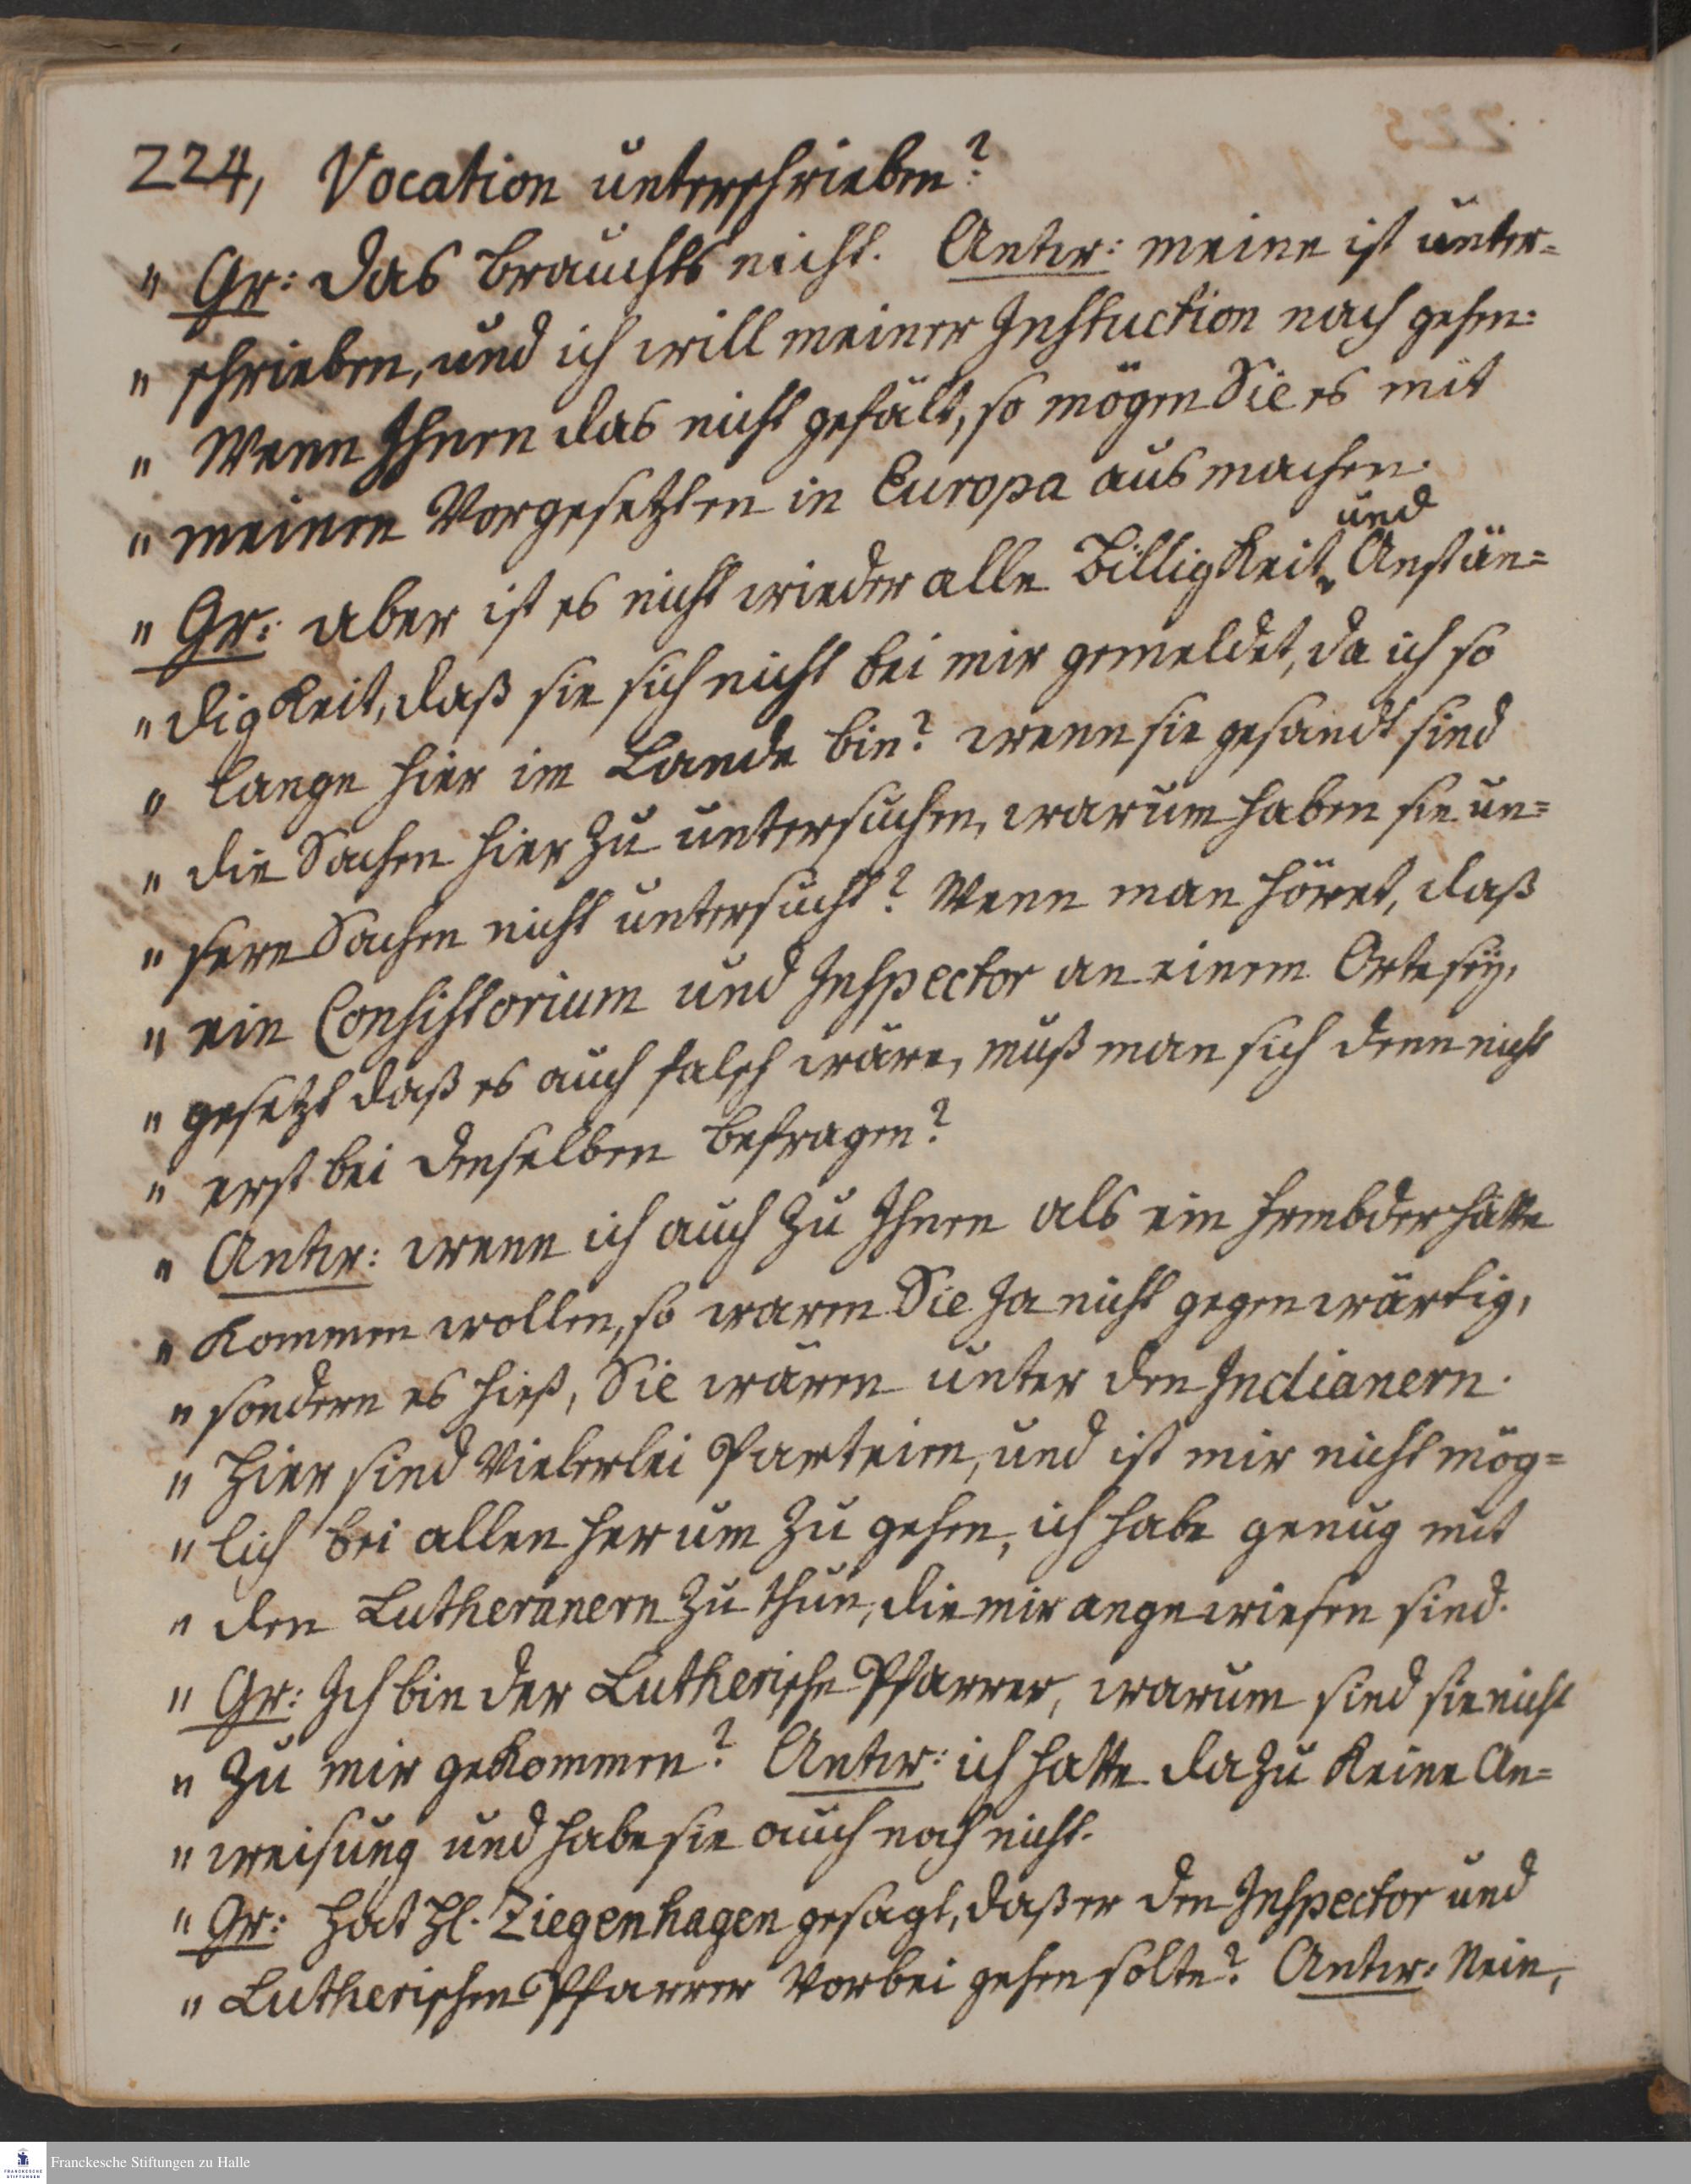 224, Vocation unterschrieben?
" Gr: das brauchts nicht. Antw: meine ist unter=
" schrieben, und ich will meiner Instuction nach gehen:
" Wenn Ihnen das nicht gefält, so mögen Sie es mit
" meinen Vorgesetzten in Europa ausmachen.
und
" Gr: aber ist es nicht wieder alle Billigkeit Anstän=
" digkeit, daß sie sich nicht bei mir gemeldet, da ich so
" lange hier im Lande bin? wenn sie gesandt sind
" die Sachen hier zu untersuchen, warum haben sie un=
" sere Sachen nicht untersucht? Wenn man höret, daß
" ein Consistorium und Inspector an einem Orte sey,
" gesetzt daß es auch falsch wäre, muß man sich denn nicht
" erst bei denselben befragen?
" Antw: wenn ich auch zu Ihnen als ein frembder hätte
" kommen wollen, so waren Sie ja nicht gegenwärtig,
" sondern es hieß, Sie wären unter den Indianern.
" Hier sind Vielerlei Parteien, und ist mir nicht mög=
" lich bei allen herum zu gehen, ich habe genug mit
" den Lutheranern zu thun, die mir angewiesen sind.
" Gr: Ich bin der Lutherische Pfarrer, warum sind sie nicht
" zu mir gekommen? Antw: ich hatte dazu keine An=
" weisung und habe sie auch noch nicht.
" Gr: Hat H. Ziegenhagen gesagt, daß er den Inspector und
" Lutherischen Pfarrer Vorbei gehen solte? Antw: Nein,
Franckesche Stiftungen zu Halle